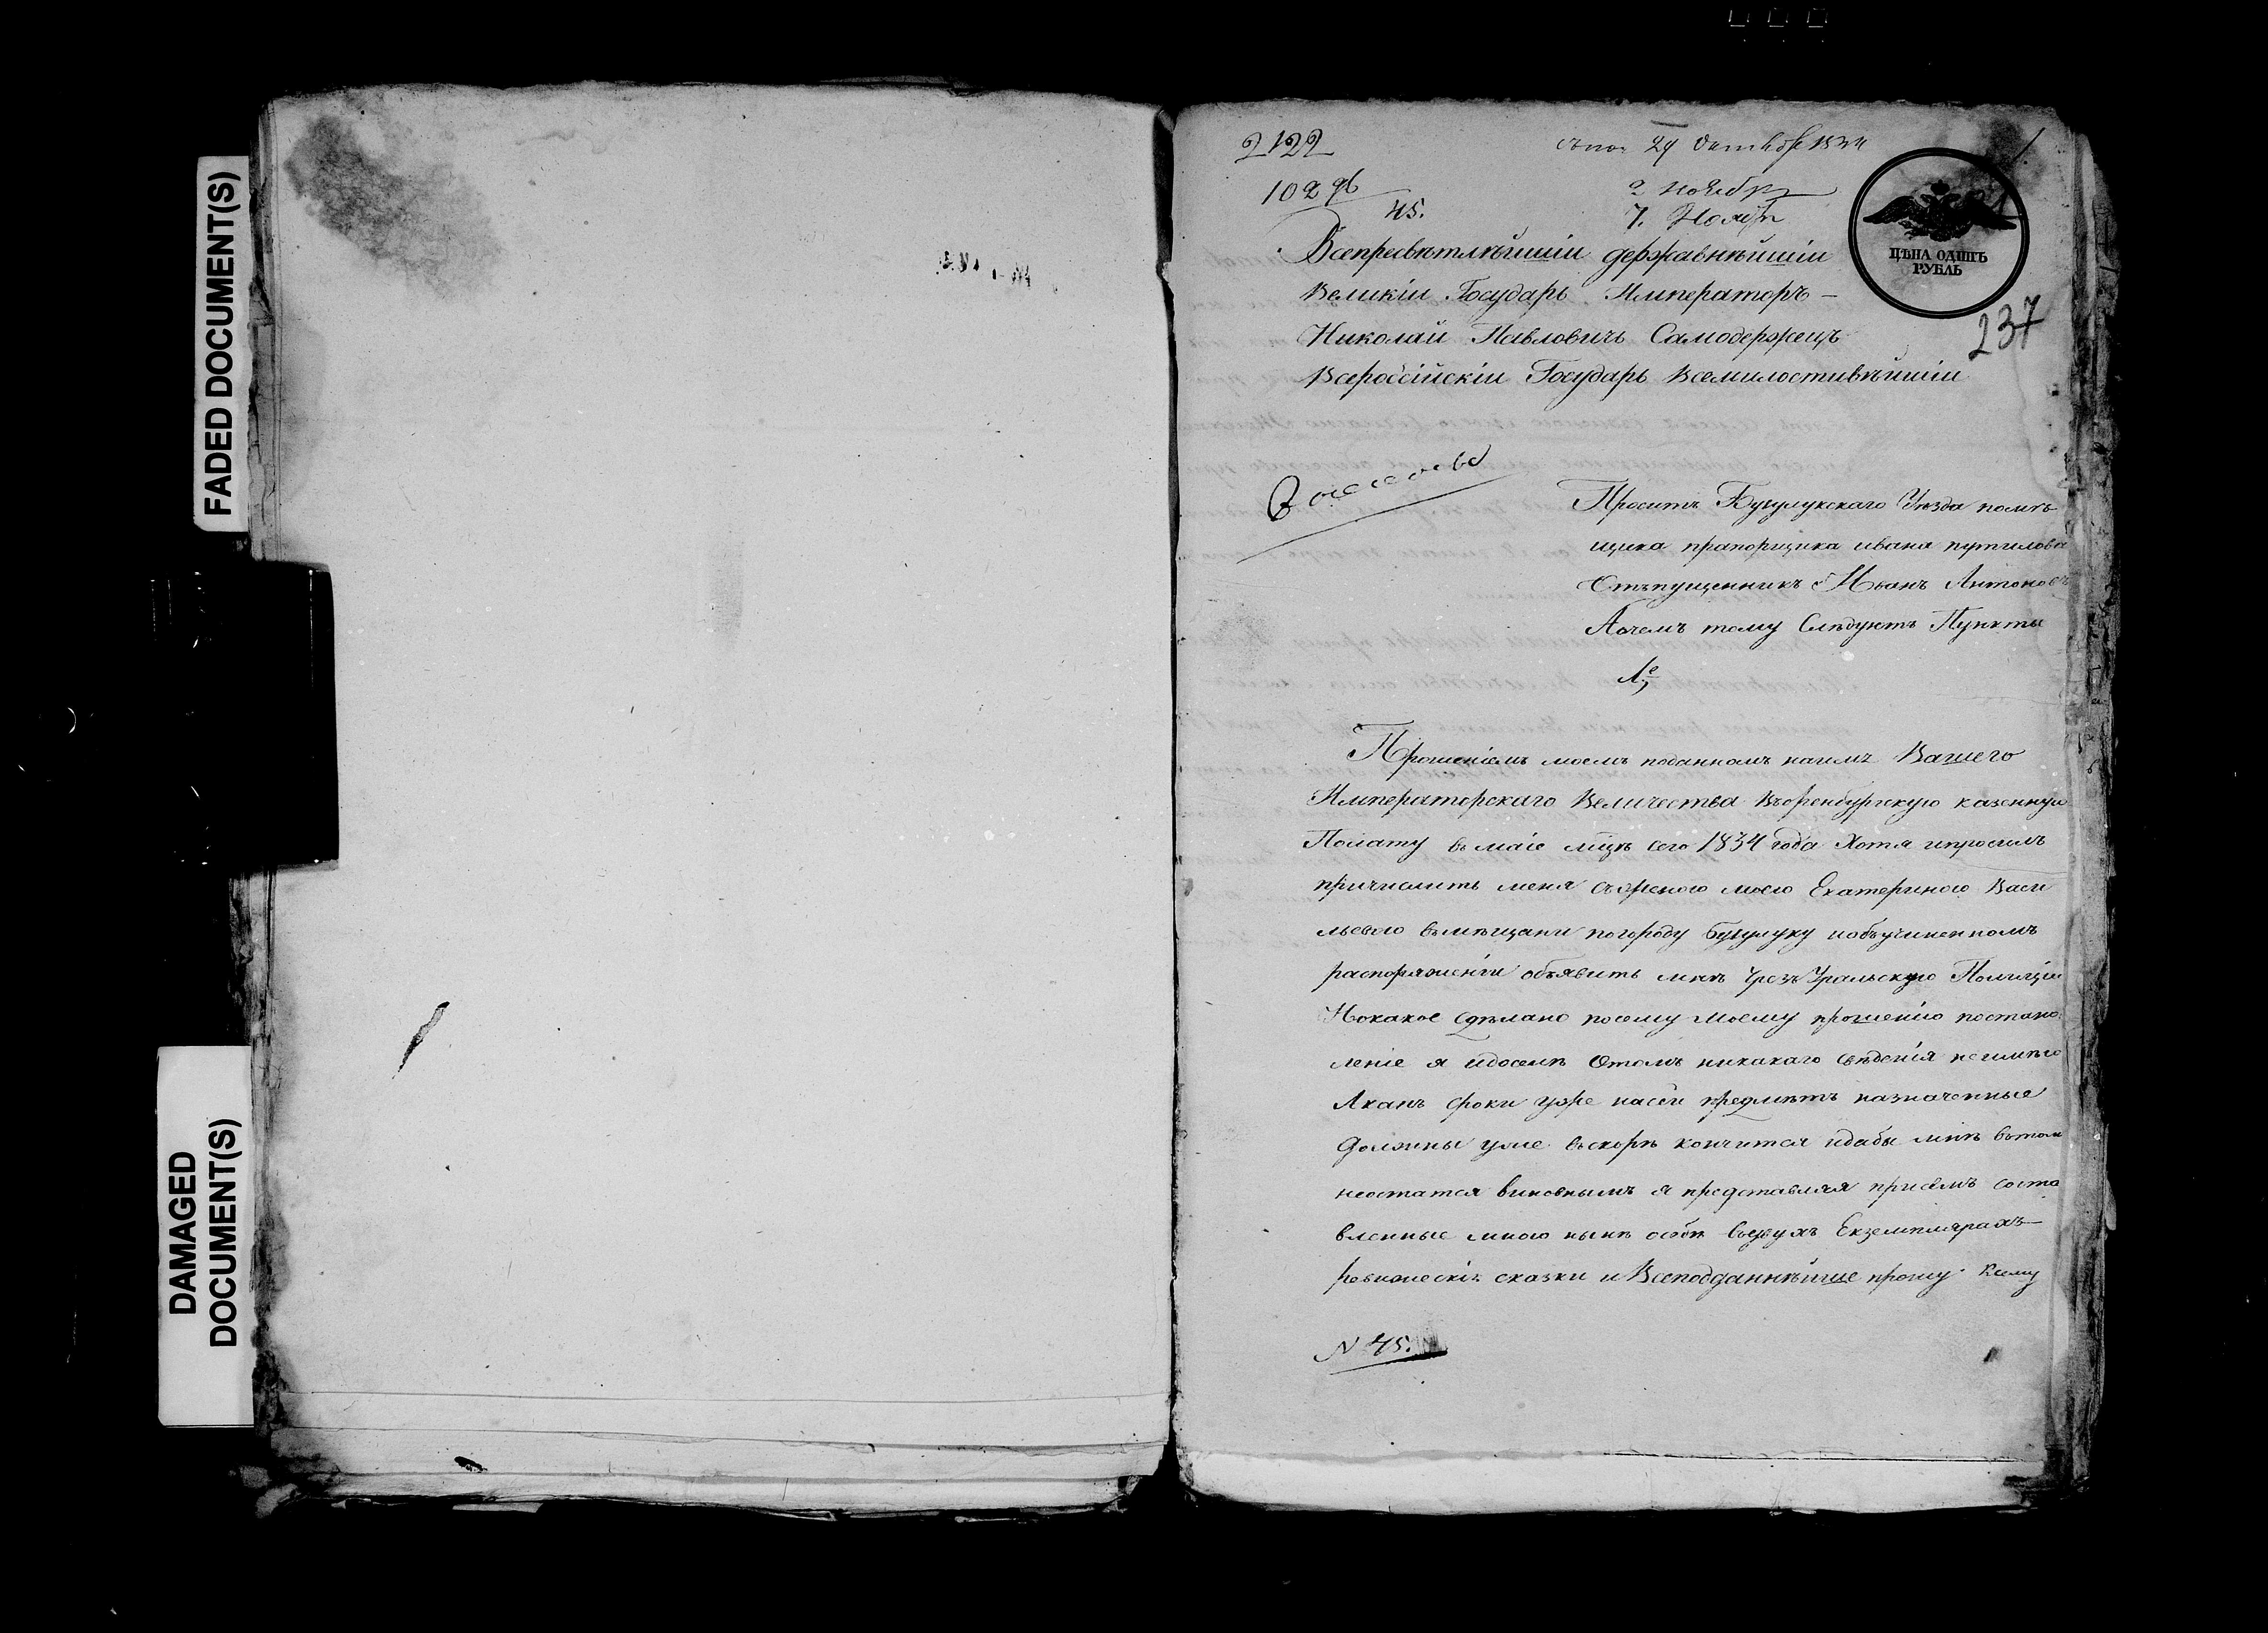 FADED DOCUMENT(S)
DAMAGED
DOCUMENT(S)
2122
29 Октября 1834
10296
2 ноября
45.
7. Ноября
ЦѢНА ОДИНЪ
РУБЛЬ
237
Всепресвѣтлѣйшіи державнѣйшіи
Великіи Государь Императоръ —
Николай Павловичь Самодержецъ
Всероссійскіи Государь Всемилостивѣйшіи
Проситъ Бузулукскаго Уѣзда помѣ
щика прапорщика ивана путилова
Отъпущенникъ Иванъ Антоновъ
Аочемъ тому Слѣдуютъ Пункты
1е
Прошеніемъ моемъ поданномъ наимя Вашего
Императорскаго Величества Въоренбургскую казенную
Полату въ маіе мцѣ сего 1834 года Хотя ипросилъ
причислить меня съженою моею Екатериною Васи
льевою вьмѣщани погороду бузулуку иобъучиненномъ
распоряженіи объявить мнѣ Чрезъ Уральскую Полицію
Нокакое сдѣлано посему моему прошенію постано
леніе я идоселѣ Отомъ никакаго свѣденія неимѣю
Акакъ сроки уже насей предмѣтъ назначенные
должны уже въскорѣ кончится идабы мнѣ вътом
неостатся виновнымъ я представляя присемъ соста
вленные мною нынѣ особѣ въдвухъ Екземплярахъ
ревижескіе сказки и Всеподданнѣйше прошу Ксему
N 45.